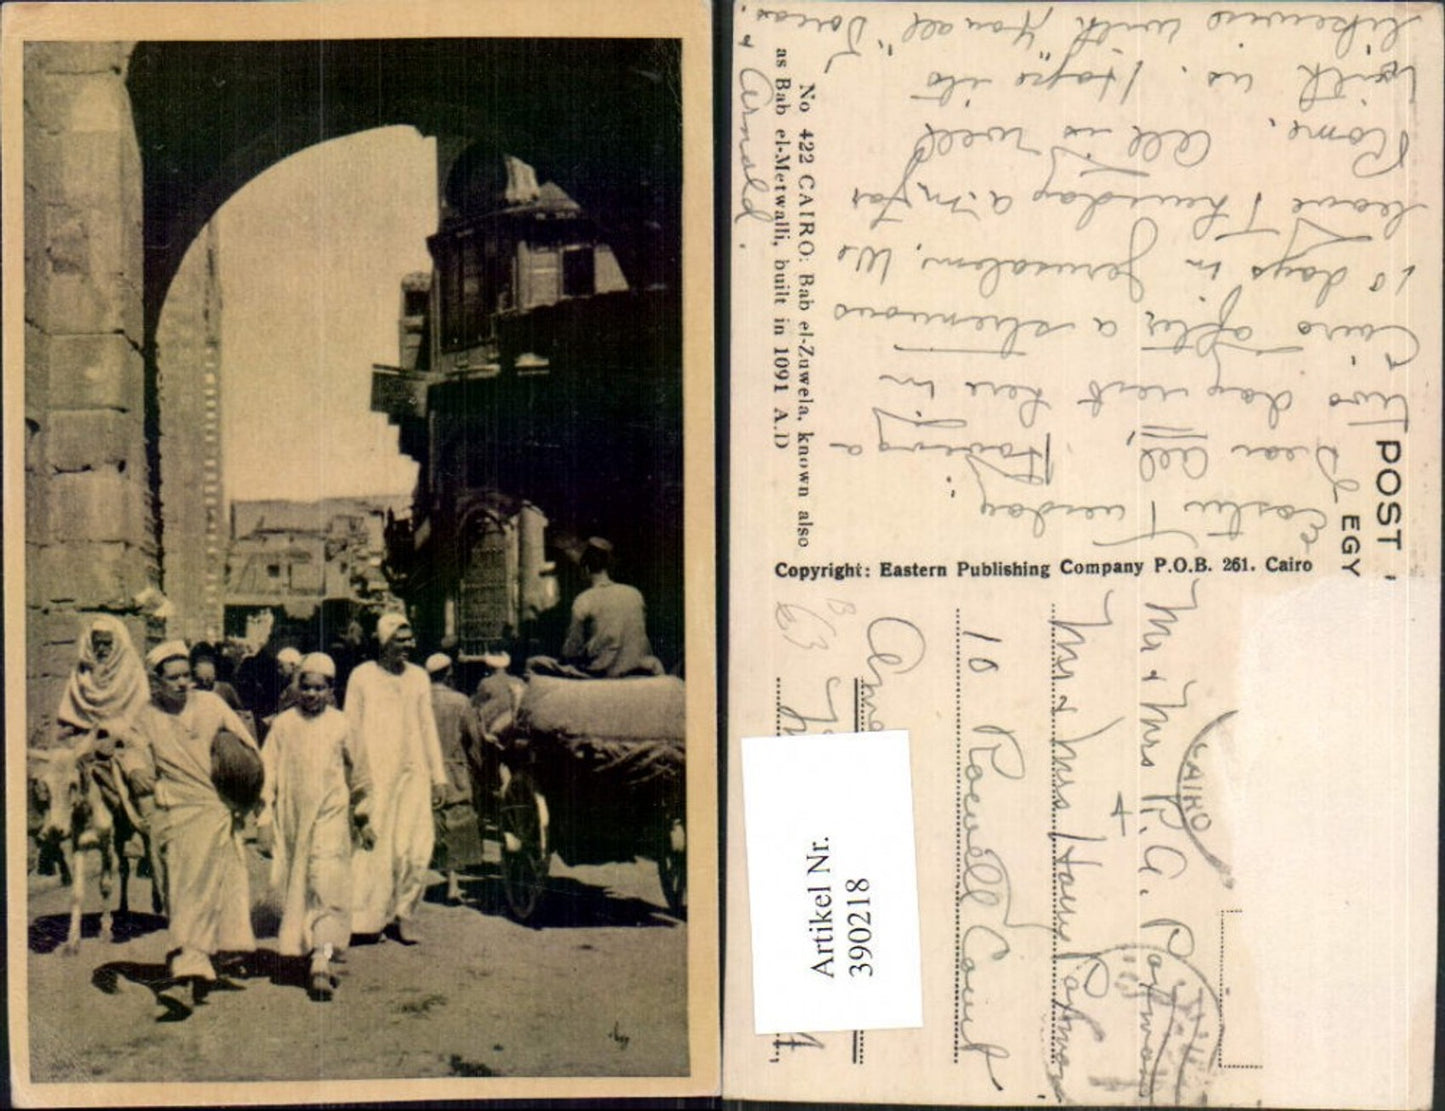 No 422 CAIRO: Bab el-Zuwela, known also
as Bab el-Metwalli, built in 1091 A.D
POST
EGY
Easter Tuesday
Dear All, Having a
two day rest here in
Cairo after a strenuous
10 days in Jerusalem. We
leave Thursday a.m. for
Rome. All is well
with us. Hope its
likewise with you all "Doras
& Arnold.
Copyright: Eastern Publishing Company P.O.B. 261. Cairo
CAIRO
Mr & Mrs R. A.
+
Mr & Mrs Harry
10 Rowell Court
63
Artikel Nr.
390218